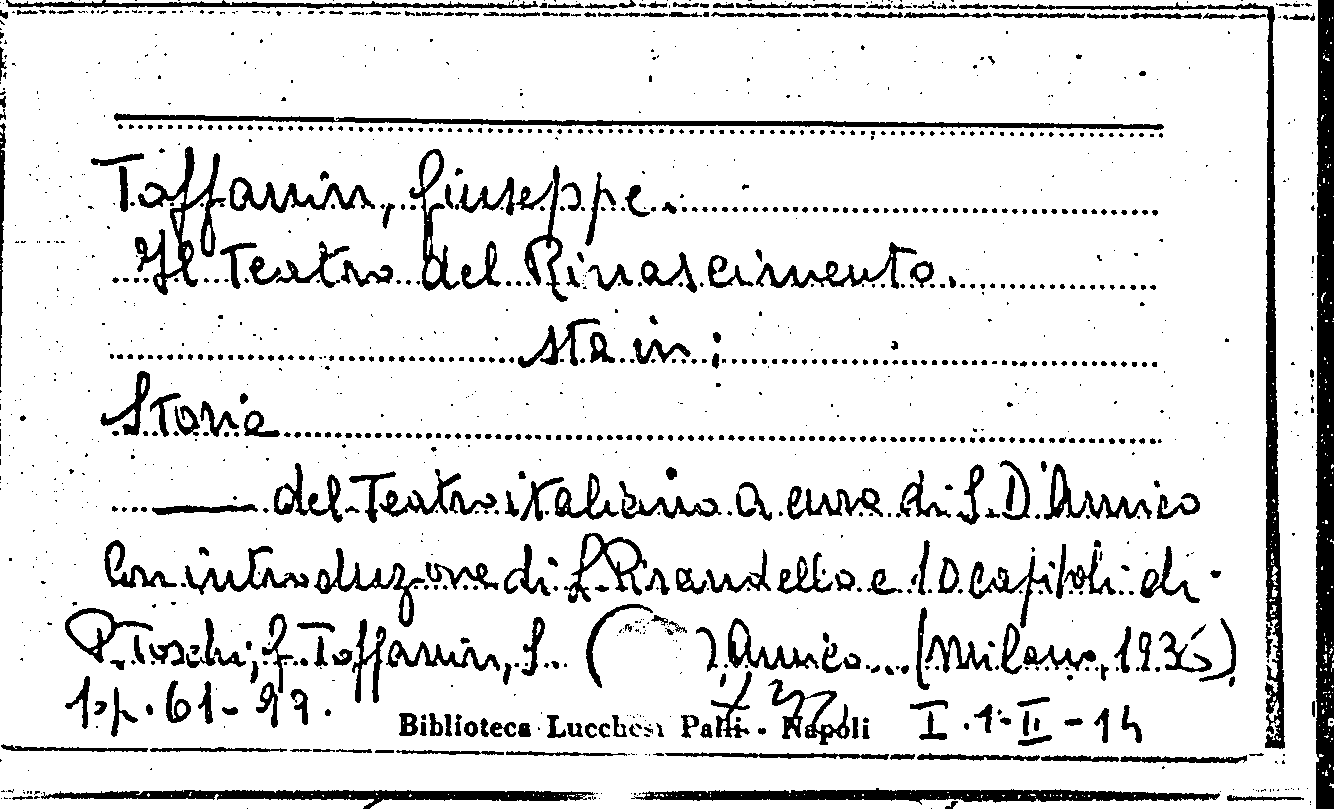 Toffanin, Giuseppe.
Il Teatro del Rinascimento.
sta in:
Storia
del Teatro italiano a cura di S. D'Amico
Con introduzione di L. Pirandello e 10 capitoli di
P. Toschi, G. Toffanin, S. ( ) Amico... (Milano, 1936)
pp. 61-97.
Biblioteca Lucchesi Palli - Napoli I.1-II-14